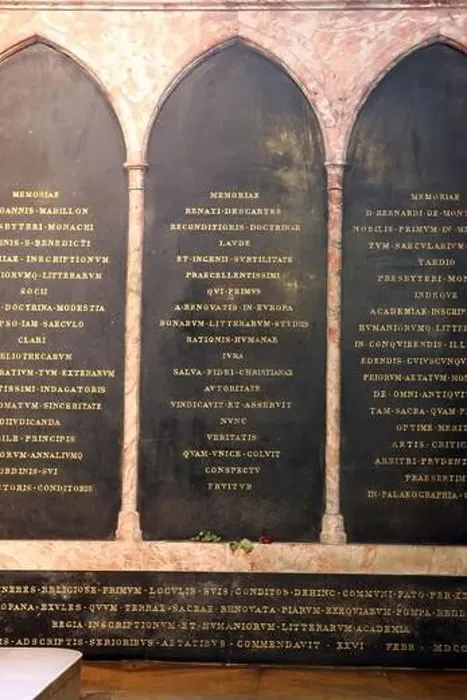 MEMORIAE
OANNIS·MABILLON
SBYTERI·MONACHI
INIS·S·BENEDICTI
IAE·INSCRIPTIONVM
IORVMQ·LITTERARVM
SOCII
DOCTRINA·MODESTIA
PSO·IAM·SAECVLO
CLARI
BLIOTHECARVM
RATIVM·TVM·EXTERARVM
TISSIMI·INDAGATORIS
OMATVM·SINCERITATE
DIIVDICANDA
ORVM·ANNALIVMQ
ORDINIS·SVI
CTORIS·CONDITORIS
MEMORIAE
RENATI·DESCARTES
RECONDITIORIS·DOCTRINAE
LAVDE
ET·INGENII·SVBTILITATE
PRAECELLENTISSIMI
QVI·PRIMVS
A·RENOVATIS·IN·EVROPA
BONARVM·LITTERARVM·STVDIIS
RATIONIS·HVMANAE
IVRA
SALVA·FIDEI·CHRISTIANAE
AVTORITATE
VINDICAVIT·ET·ASSERVIT
NVNC
VERITATIS
QVAM·VNICE·COLVIT
CONSPECTV
FRVITVR
MEMORIAE
D·BERNARDI·DE·MON
NOBILIS·PRIMVM·IN·M
TVM·SAECVLARIVM
TAEDIO
PRESBYTERI·MON
INDEQVE
ACADEMIAE·INSCRIP
HVMANIORVMQ·LITTER
IN·CONQVIRENDIS·ILL
EDENDIS·CVIVSCVNQV
PRIORVM·AETATVM·MON
DE·OMNI·ANTIQVIT
TAM·SACRA·QVAM·P
OPTIME·MERIT
ARTIS·CRITIC
ARBITRI·PRVDENT
PRAESERTIM
IN·PALAEOGRAPHIA
NERES·RELIGIOSE·PRIMVM·LOCVLIS·SVIS·CONDITOS·DEHINC·COMMVNI·FATO·PER·XX
OFANA·EXVLES·QVVM·TERRAE·SACRAE·RENOVATA·PIARVM·EXEQVIARVM·POMPA·REDD
REGIA·INSCRIPTIONVM·ET·HVMANIORVM·LITTERARVM·ACADEMIA
IS·ADSCRIPTIS·SERIORIBVS·AETATIBVS·COMMENDAVIT·XXVI FEBR·MDCC